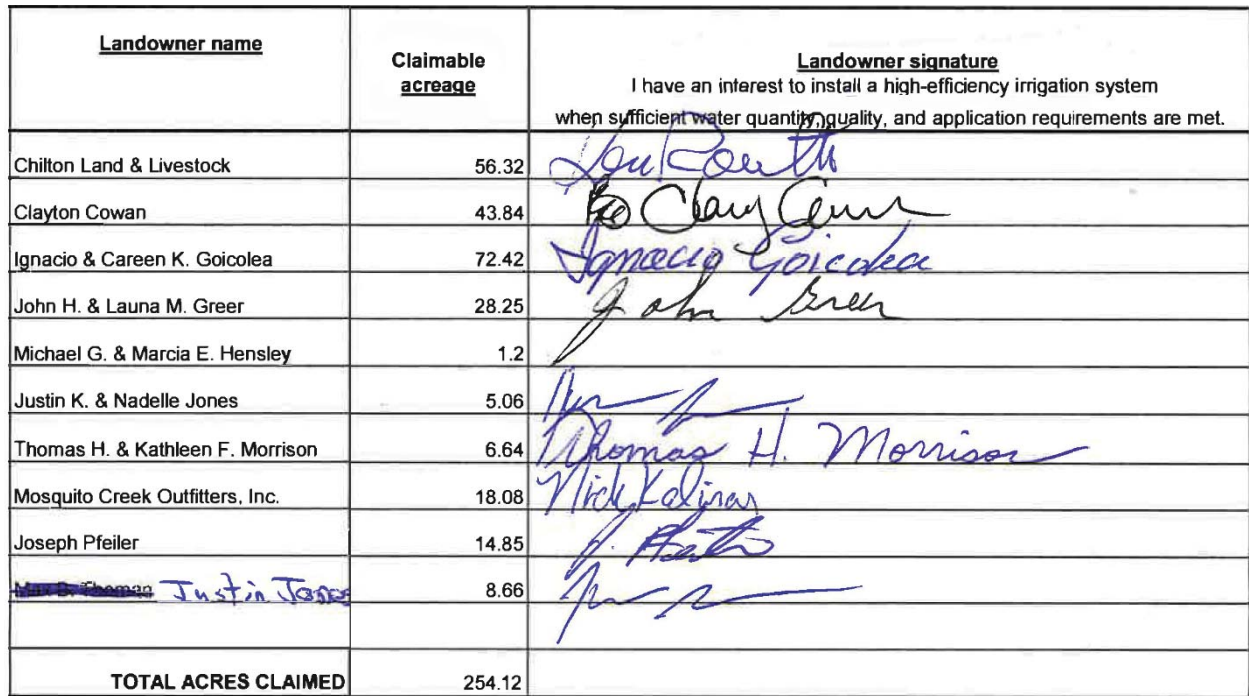 Landowner name
Claimable acreage
Landowner signature
I have an interest to install a high-efficiency irrigation system
when sufficient water quantity, quality, and application requirements are met.
Chilton Land & Livestock 56.32
Clayton Cowan 43.84
Ignacio & Careen K. Goicolea 72.42 Ignacio Goicolea
John H. & Launa M. Greer 28.25 John Greer
Michael G. & Marcia E. Hensley 1.2
Justin K. & Nadelle Jones 5.06
Thomas H. & Kathleen F. Morrison 6.64 Thomas H. Morrison
Mosquito Creek Outfitters, Inc. 18.08 Nick
Joseph Pfeiler 14.85 J.
Justin Jones 8.66
TOTAL ACRES CLAIMED 254.12